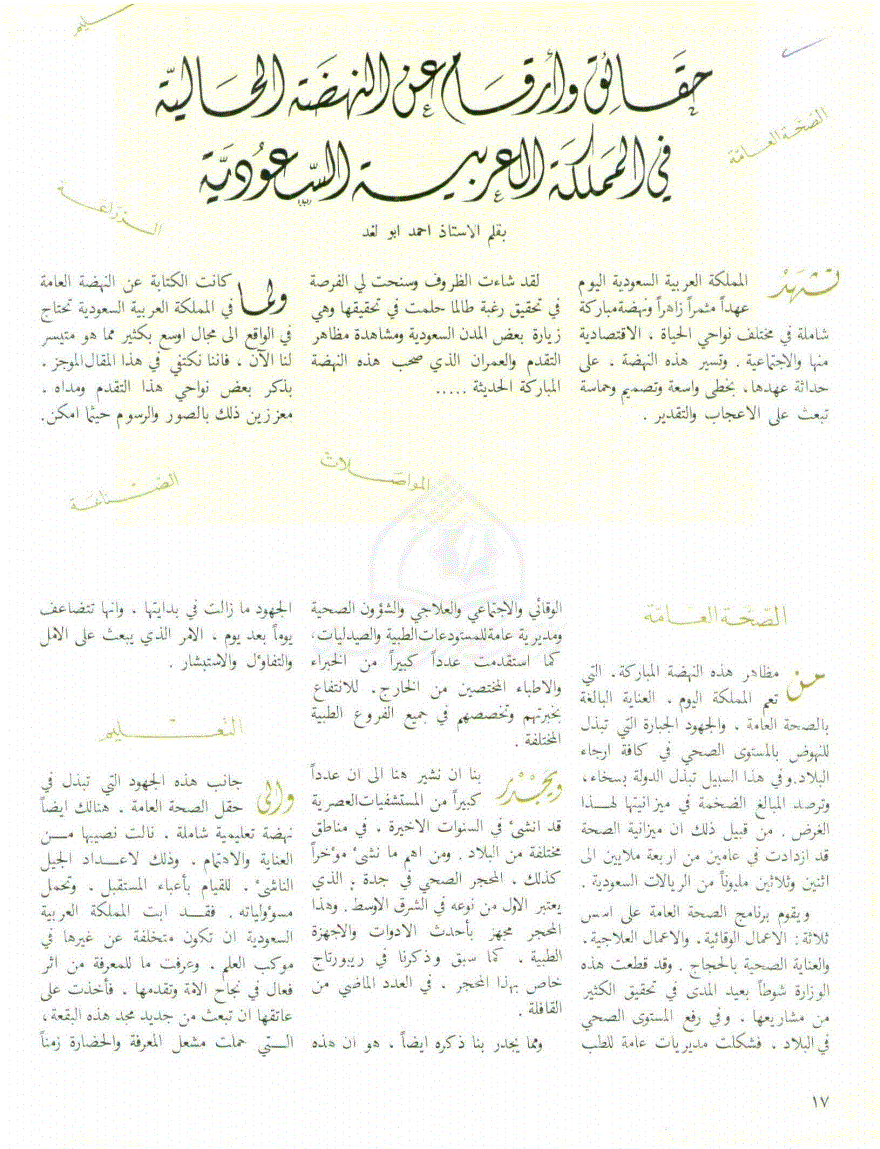 حقائق وأرقام عن النهضة الحالية
في المملكة العربية السعودية
بقلم الاستاذ احمد ابو لغد
سليم
الصحة العامة
الزراعة
تشهد المملكة العربية السعودية اليوم
عهداً مثمراً زاهراً ونهضة مباركة
شاملة في مختلف نواحي الحياة ، الاقتصادية
منها والاجتماعية . وتسير هذه النهضة . على
حداثة عهدها، بخطى واسعة وتصميم وحماسة
تبعث على الاعجاب والتقدير .
لقد شاءت الظروف وسنحت لي الفرصة
في تحقيق رغبة طالما حلمت في تحقيقها وهي
زيارة بعض المدن السعودية ومشاهدة مظاهر
التقدم والعمران الذي صحب هذه النهضة
المباركة الحديثة .....
ولما كانت الكتابة عن النهضة العامة
في المملكة العربية السعودية تحتاج
في الواقع الى مجال اوسع بكثير مما هو متيسر
لنا الآن ، فاننا نكتفي في هذا المقال الموجز .
بذكر بعض نواحي هذا التقدم ومداه .
معززين ذلك بالصور والرسوم حيثما امكن.
المواصلات
الصناعة
الصحة العامة
من مظاهر هذه النهضة المباركة. التي
تعم المملكة اليوم . العناية البالغة
بالصحة العامة . والجهود الجبارة التي تبذل
للنهوض بالمستوى الصحي في كافة ارجاء
البلاد.وفي هذا السبيل تبذل الدولة بسخاء،
وترصد المبالغ الضخمة في ميزانيتها لهذا
الغرض . من قبيل ذلك ان ميزانية الصحة
قد ازدادت في عامين من اربعة ملايين الى
اثنين وثلاثين مليوناً من الريالات السعودية .
ويقوم برنامج الصحة العامة على اسس
ثلاثة: الاعمال الوقائية. والاعمال العلاجية.
والعناية الصحية بالحجاج . وقد قطعت هذه
الوزارة شوطاً بعيد المدى في تحقيق الكثير
من مشاريعها . وفي رفع المستوى الصحي
في البلاد . فشكلت مديريات عامة للطب
الوقائي والاجتماعي والعلاجي والشؤون الصحية
ومديرية عامة للمستودعات الطبية والصيدليات،
كما استقدمت عدداً كبيراً من الخبراء
والاطباء المختصين من الخارج. للانتفاع
بخبرتهم وتخصصهم في جميع الفروع الطبية
المختلفة .
ويجدر بنا ان نشير هنا الى ان عدداً
كبيراً من المستشفيات العصرية
قد انشئ في السنوات الاخيرة . في مناطق
مختلفة من البلاد . ومن اهم ما نشئ مؤخراً
كذلك . المحجر الصحي في جدة ، الذي
يعتبر الاول من نوعه في الشرق الاوسط. وهذا
المحجر مجهز بأحدث الادوات والاجهزة
الطبية . كما سبق وذكرنا في ريبورتاج
خاص بهذا المحجر . في العدد الماضي من
القافلة .
ومما يجدر بنا ذكره ايضاً . هو ان هذه
الجهود ما زالت في بدايتها . وانها تتضاعف
يوماً بعد يوم ، الامر الذي يبعث على الامل
والتفاؤل والاستبشار .
التعليم
والى جانب هذه الجهود التي تبذل في
حقل الصحة العامة . هنالك ايضاً
نهضة تعليمية شاملة . نالت نصيبها من
العناية والاهتمام . وذلك لاعداد الجيل
الناشئ . للقيام بأعباء المستقبل . وتحمل
مسؤولياته . فقد ابت المملكة العربية
السعودية ان تكون متخلفة عن غيرها في
موكب العلم . وعرفت ما للمعرفة من اثر
فعال في نجاح الامة وتقدمها . فأخذت على
عاتقها ان تبعث من جديد مجد هذه البقعة،
التي حملت مشعل المعرفة والحضارة زمناً
١٧